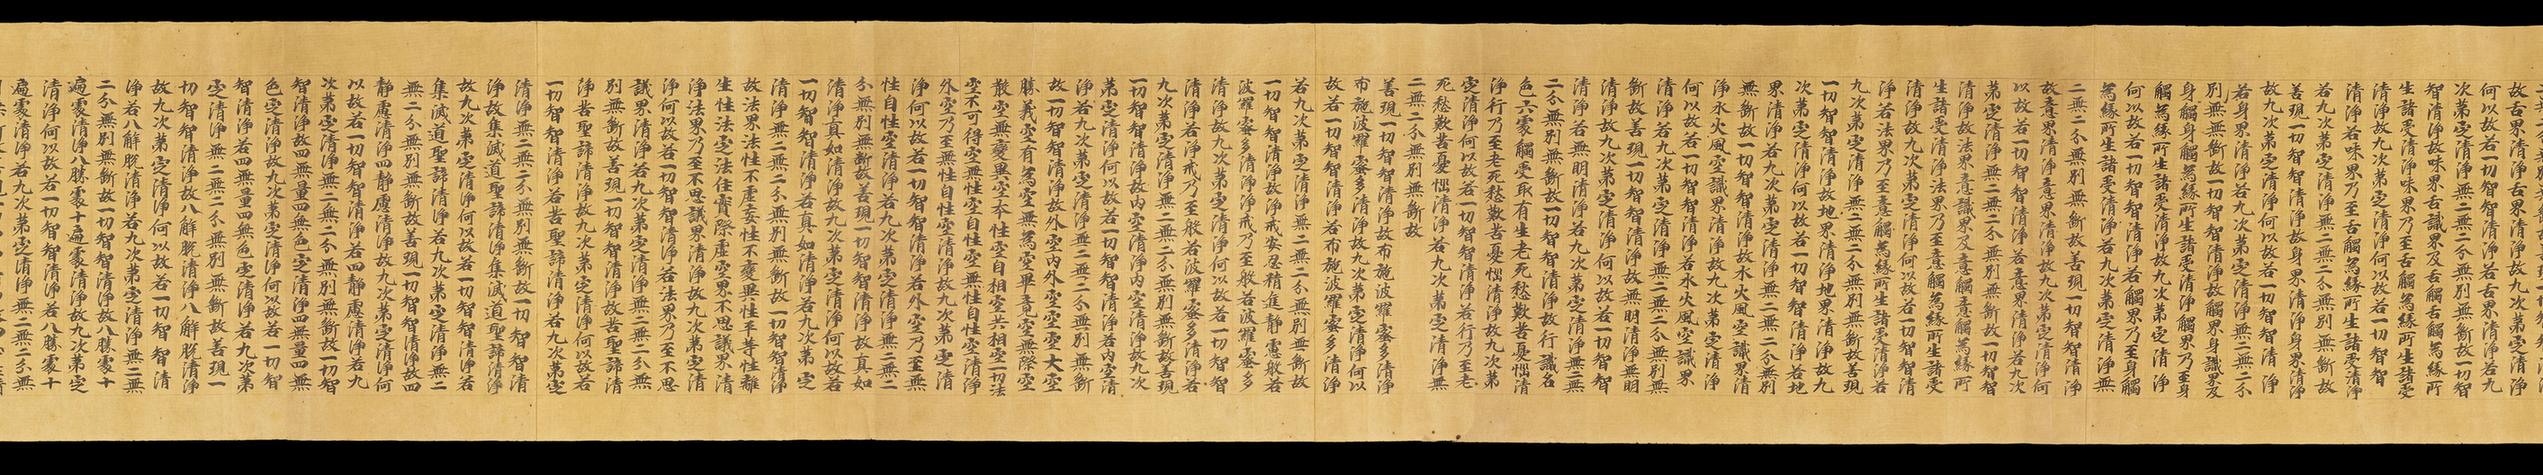 故舌界清淨舌界清淨故九次第定清淨
何以故若一切智智清淨若舌界清淨若九
次第定清淨無二無二分無別無斷故一切智
智清淨故味界舌識界及舌觸舌觸為緣所
生諸受清淨味界乃至舌觸為緣所生諸受
清淨故九次第定清淨何以故若一切智智
清淨若味界乃至舌觸為緣所生諸受清淨
若九次第定清淨無二無二分無別無斷故
善現一切智智清淨故身界清淨身界清淨
故九次第定清淨何以故若一切智智清淨
若身界清淨若九次第定清淨無二無二分
別無無斷故一切智智清淨故觸界身識界及
身觸身觸為緣所生諸受清淨觸界乃至身
觸為緣所生諸受清淨故九次第定清淨
何以故若一切智智清淨若觸界乃至身觸
為緣所生諸受清淨若九次第定清淨無
二無二分無別無斷故善現一切智智清淨
故意界清淨意界清淨故九次第定清淨何
以故若一切智智清淨若意界清淨若九次
第定清淨無二無二分無別無斷故一切智智
清淨故法界意識界及意觸意觸為緣所
生諸受清淨法界乃至意觸為緣所生諸受
清淨故九次第定清淨何以故若一切智智清
淨若法界乃至意觸為緣所生諸受清淨若
九次第定清淨無二無二分無別無斷故善現
一切智智清淨故地界清淨地界清淨故九
次第定清淨何以故若一切智智清淨若地
界清淨若九次第定清淨無二無二分無別
無斷故一切智智清淨故水火風空識界清
淨水火風空識界清淨故九次第定清淨
何以故若一切智智清淨若水火風空識界
清淨若九次第定清淨無二無二分無別無
斷故善現一切智智清淨故無明清淨無明
清淨故九次第定清淨何以故若一切智智
清淨若無明清淨若九次第定清淨無二無
二分無別無斷故一切智智清淨故行識名
色六處觸受取有生老死愁歎苦憂惱清
淨行乃至老死愁歎苦憂惱清淨故九次第
定清淨何以故若一切智智清淨若行乃至老
死愁歎苦憂惱清淨若九次第定清淨無
二無二分無別無斷故
善現一切智智清淨故布施波羅蜜多清淨
布施波羅蜜多清淨故九次第定清淨何以
故若一切智智清淨若布施波羅蜜多清淨
若九次第定清淨無二無二分無別無斷故
一切智智清淨故淨戒安忍精進靜慮般若
波羅蜜多清淨淨戒乃至般若波羅蜜多
清淨故九次第定清淨何以故若一切智智
清淨若淨戒乃至般若波羅蜜多清淨若
九次第定清淨無二無二分無別無斷故善現
一切智智清淨故內空清淨內空清淨故九次
第定清淨何以故若一切智智清淨若內空清
淨若九次第定清淨無二無二分無別無斷
故一切智智清淨故外空內外空空空大空
勝義空有為空無為空畢竟空無際空
散空無變異空本性空自相空共相空一切法
空不可得空無性空自性空無性自性空清淨
外空乃至無性自性空清淨故九次第定清
淨何以故若一切智智清淨若外空乃至無
性自性空清淨若九次第定清淨無二無二
分無別無斷故善現一切智智清淨故真如
清淨真如清淨故九次第定清淨何以故若
一切智智清淨若真如清淨若九次第定
清淨無二無二分無別無斷故一切智智清淨
故法界法性不虛妄性不變異性平等性離
生性法定法住實際虛空界不思議界清
淨法界乃至不思議界清淨故九次第定清
淨何以故若一切智智清淨若法界乃至不思
議界清淨若九次第定清淨無二無二分無
別無斷故善現一切智智清淨故苦聖諦清
淨苦聖諦清淨故九次第定清淨何以故若
一切智智清淨若苦聖諦清淨若九次第定
清淨無二無二分無別無斷故一切智智清
淨故集滅道聖諦清淨集滅道聖諦清淨
故九次第定清淨何以故若一切智智清淨若
集滅道聖諦清淨若九次第定清淨無二
無二分無別無斷故善現一切智智清淨故四
靜慮清淨四靜慮清淨故九次第定清淨何
以故若一切智智清淨若四靜慮清淨若九
次第定清淨無二無二分無別無斷故一切智
智清淨故四無量四無色定清淨四無量四無
色定清淨故九次第定清淨何以故若一切智
智清淨若四無量四無色定清淨若九次第
定清淨無二無二分無別無斷故善現一
切智智清淨故八解脫清淨八解脫清淨
故九次第定清淨何以故若一切智智清
淨若八解脫清淨若九次第定清淨無二無
二分無別無斷故一切智智清淨故八勝處十
遍處清淨八勝處十遍處清淨故九次第定
清淨何以故若一切智智清淨若八勝處十
遍處清淨若九次第定清淨無二無二分無